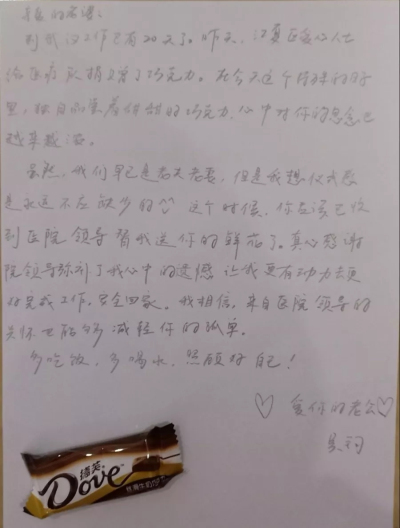 亲爱的老婆:
到武汉工作已有20天了。昨天,江夏区爱心人士
给医疗队捐赠了巧克力。在今天这个特殊的时
里,独自品尝着甜甜的巧克力,心中对你的思念已
越来越浓。
虽然,我们早已是老夫老妻,但是我想仪式感
是永远不在缺少的^^ 这个时候,你应该已收
到医院领导替我送你的鲜花了。真心感谢
院领导弥补了我心中的遗憾 让我更有动力去更
好完成工作,安全回家。我相信,来自医院领导的
关怀也能够减轻你的孤单。
多吃饭,多喝水,照顾好自己!
♡ 爱你的老公♡
德芙
Dove
丝滑牛奶巧克力